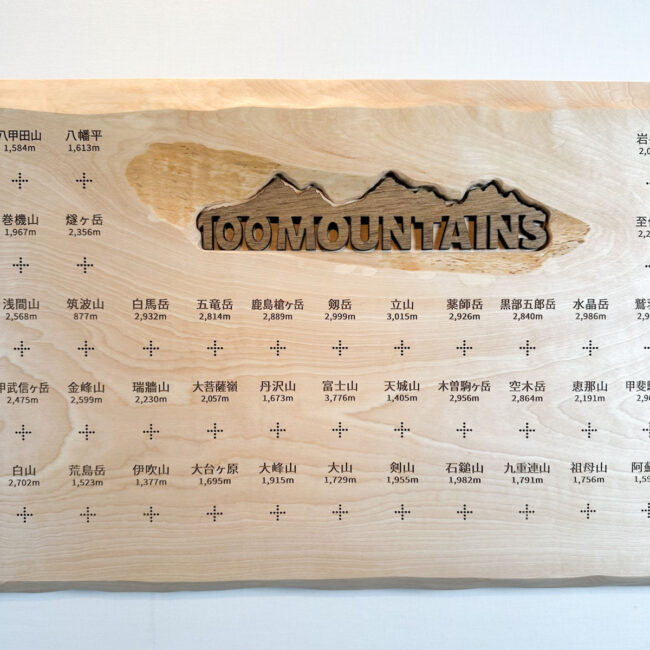 八甲田山 八幡平
1,584m 1,613m
100 MOUNTAINS
巻機山 燧ヶ岳
1,967m 2,356m
浅間山 筑波山 白馬岳 五竜岳 鹿島槍ヶ岳 剱岳 立山 薬師岳 黒部五郎岳 水晶岳
2,568m 877m 2,932m 2,814m 2,889m 2,999m 3,015m 2,926m 2,840m 2,986m
甲武信ヶ岳 金峰山 瑞牆山 大菩薩嶺 丹沢山 富士山 天城山 木曽駒ヶ岳 空木岳 恵那山
2,475m 2,599m 2,230m 2,057m 1,673m 3,776m 1,405m 2,956m 2,864m 2,191m
白山 荒島岳 伊吹山 大台ヶ原 大峰山 大山 剣山 石鎚山 九重連山 祖母山
2,702m 1,523m 1,377m 1,695m 1,915m 1,729m 1,955m 1,982m 1,791m 1,756m